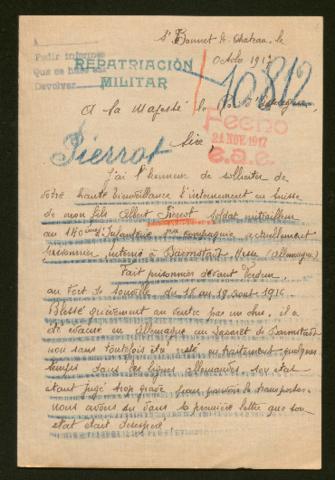 A
Pedir informes
Que se haga
Devolver
REPATRIACIÓN
MILITAR
St Bonnet le Château, le
Octobre 1917
10812
A sa Majesté le Roi d'Espagne
FECHO
21 NOV. 1917
e.a.e.
Pierrot
Sire,
J'ai l'honneur de solliciter de
votre haute bienveillance l'internement en Suisse
de mon fils Albert Pierrot soldat mitrailleur
au 140ème Infanterie compagnie actuellement
prisonnier interné à Darmstadt Hesse (Allemagne)
Fait prisonnier devant Verdun
au Fort de Souville du 18 au 19 août 1916.
Blessé grièvement au ventre par un obus, il a
été évacué en Allemagne au lazaret de Darmstadt
non sans toutefois être resté en traitement quelques
temps dans les lignes allemandes son état
étant jugé trop grave pour pouvoir le transporter.
nous avons su dans la première lettre que son
état était désespéré.